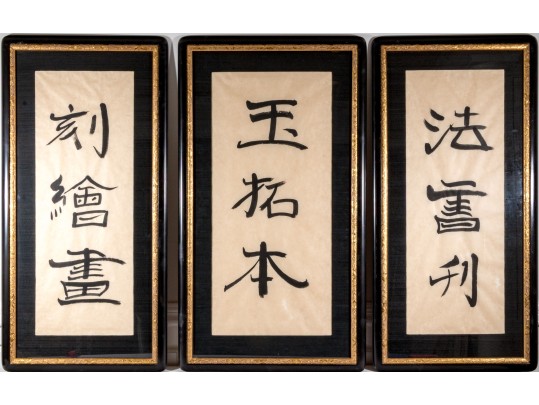 法書刋
玉拓本
刻繪畫